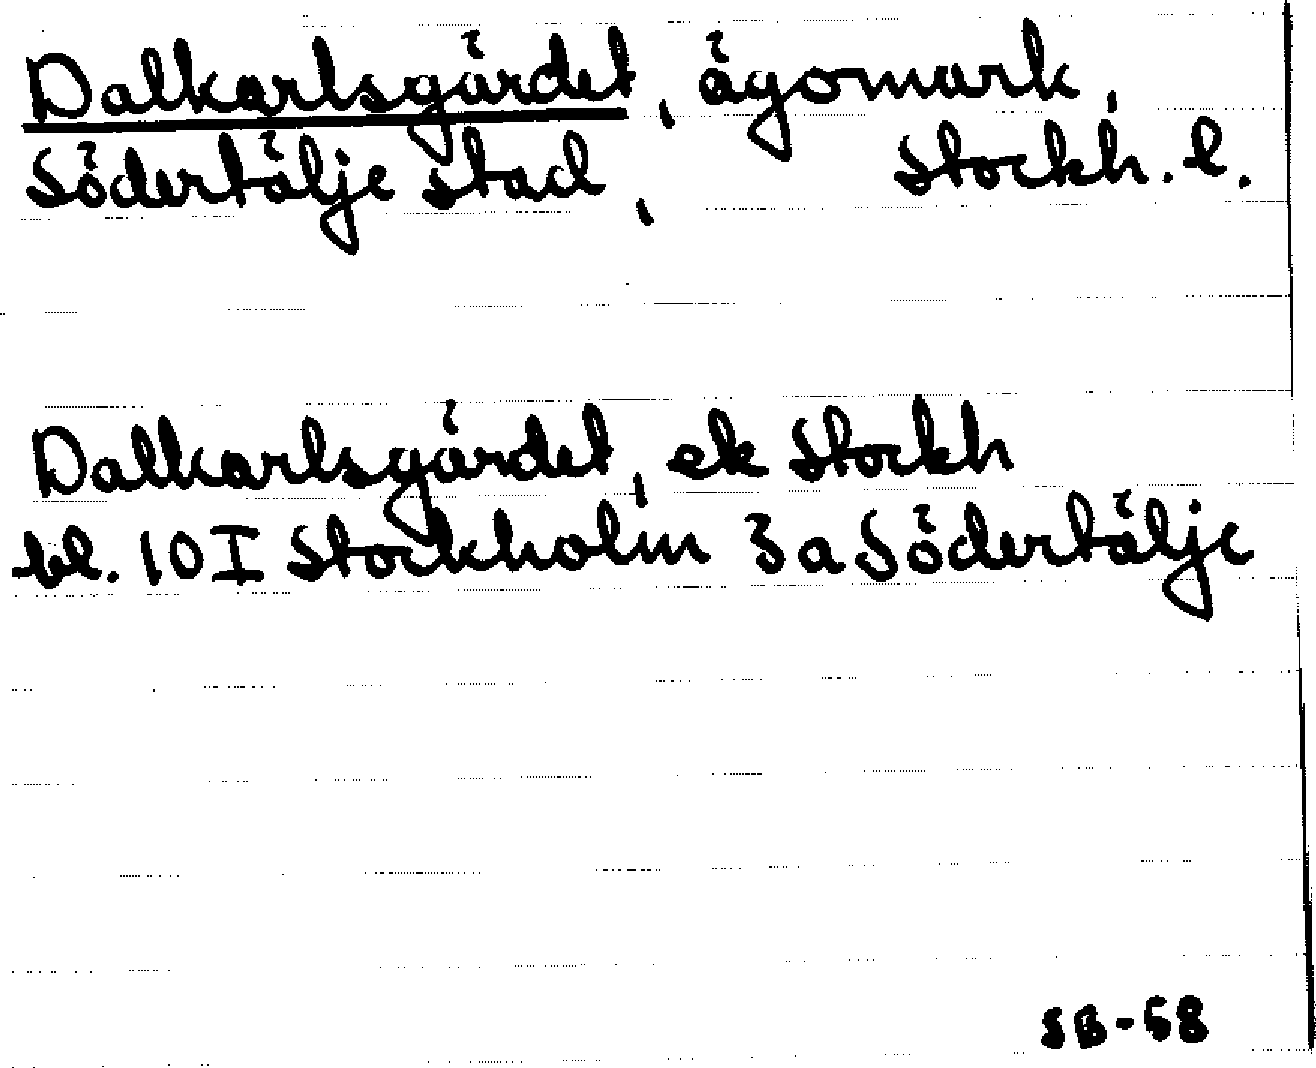 Dalkarlsgärdet, ägomark,
Södertälje stad, Stockh. l.
Dalkarlsgärdet, ek Stockh
bl. 10 I Stockholm 3 a Södertälje
SB-58